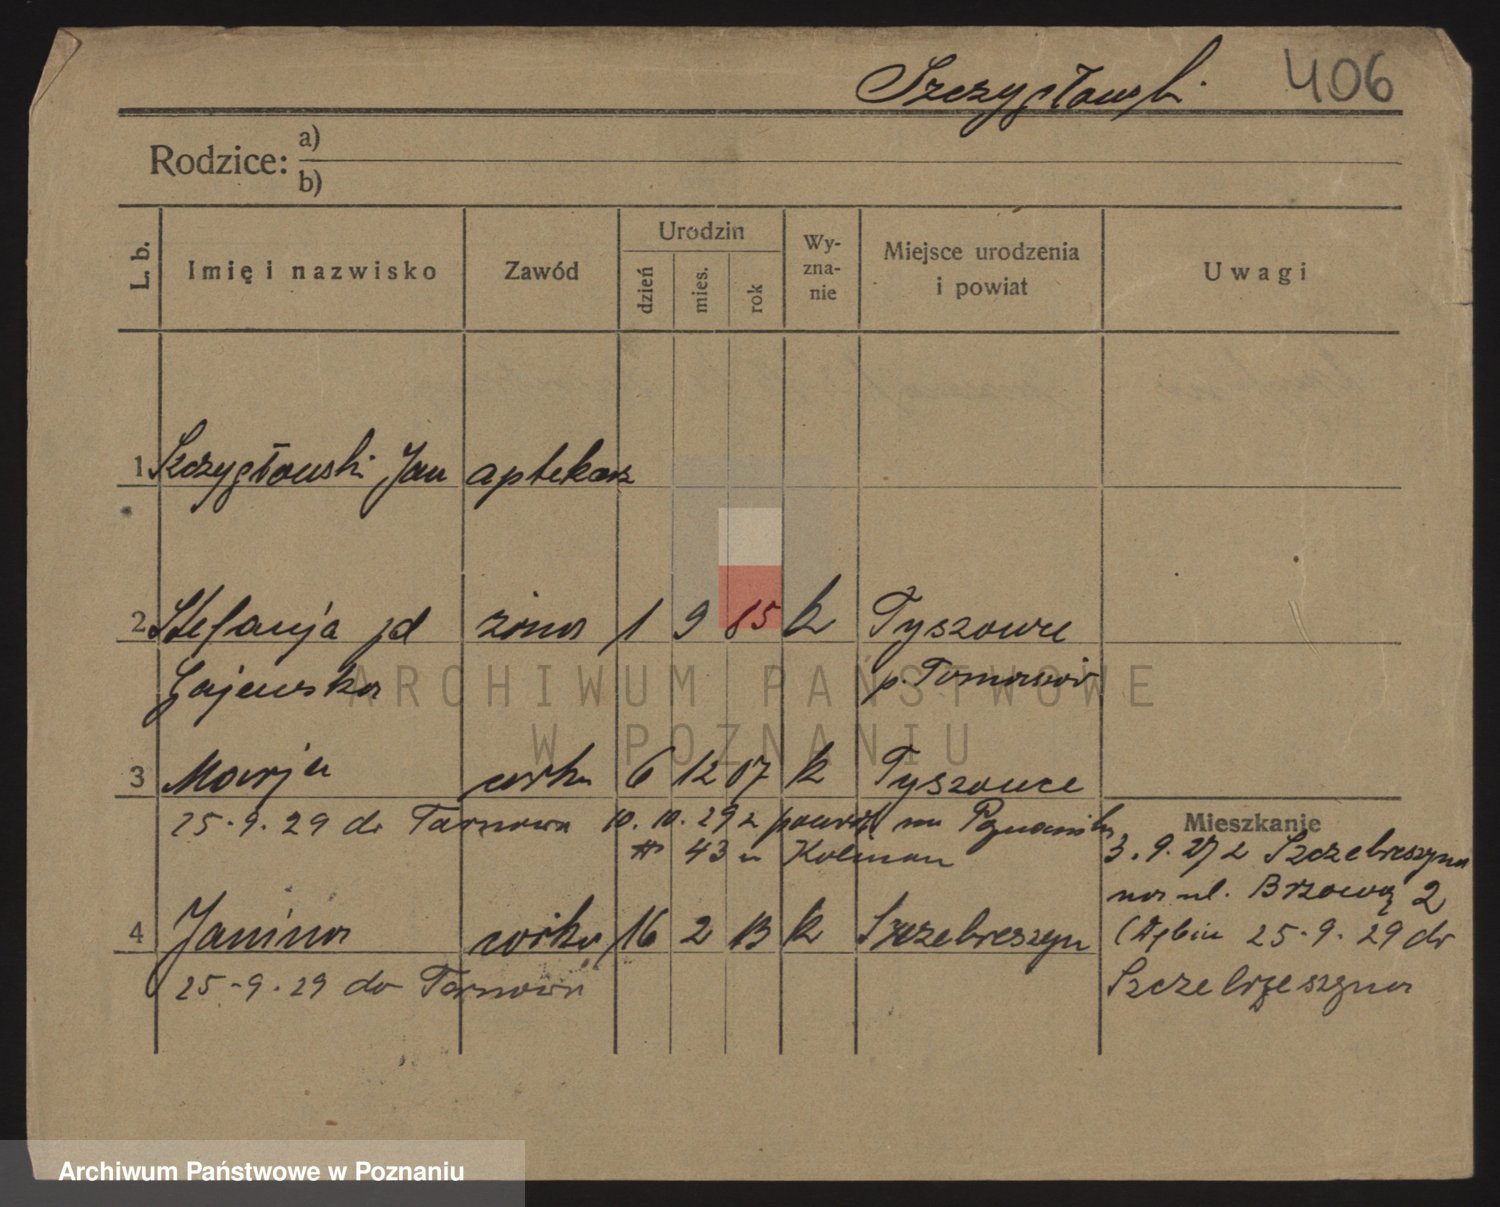 Szczygłowski 406
Rodzice: a)
b)
L. b. Imię i nazwisko Zawód Urodzin dzień mies. rok Wy-zna-nie Miejsce urodzenia i powiat Uwagi
1 Szczygłowski Jan aptekarz
2 Stefanja zd żona 1 9 85 k Tyszowce
Gajewska p. Tomaszów
3 Marja córka 6 12 07 k Tyszowce
25.9.29 do Tarnowa 10.10.29 z powrot na
43 u
Mieszkanie
3.9.27 z Szczebrzeszyna
na ul. Brzową 2
4 Janina córka 16 2 13 k Szczebrzeszyn
25.9.29 do
25-9.29 do Tarnowa
Szczebrzeszyna
ARCHIWUM PAŃSTWOWE
W POZNANIU
Archiwum Państwowe w Poznaniu